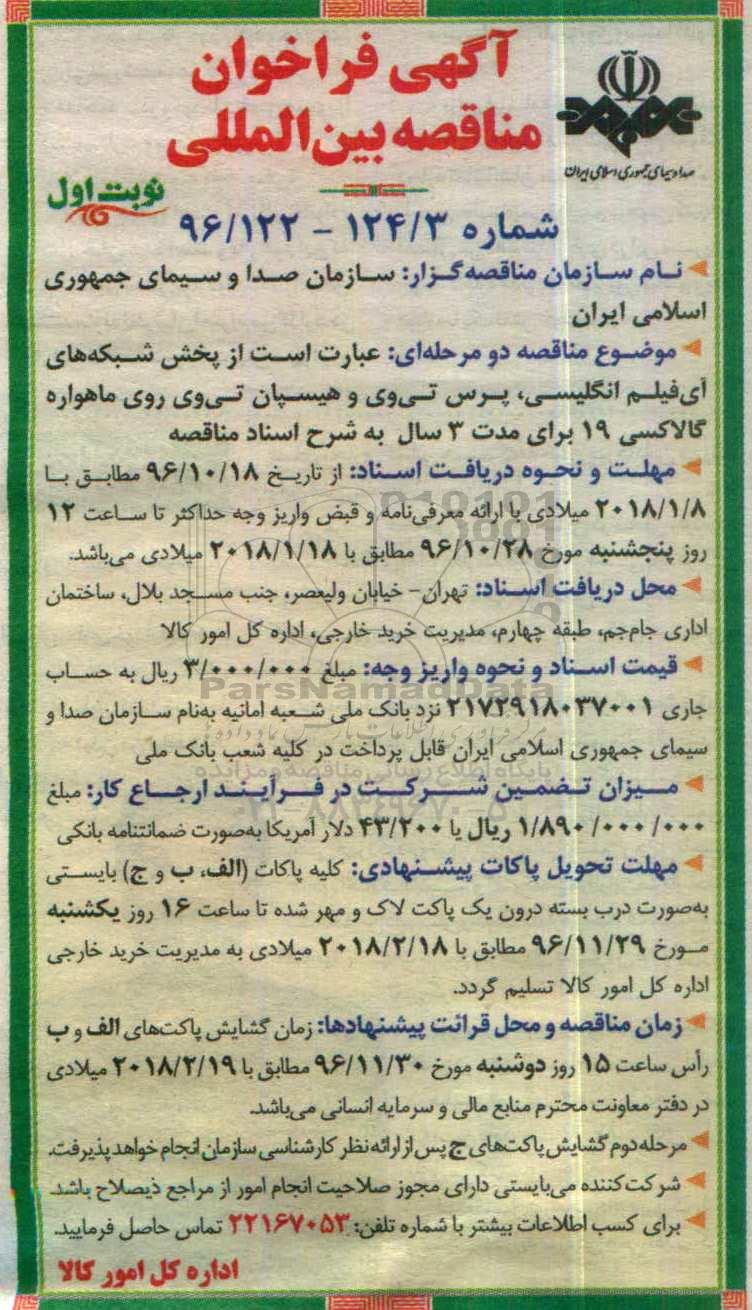 آگهی فراخوان
مناقصه بین‌المللی
صدا و سیمای جمهوری اسلامی ایران
نوبت اول
شماره ۱۲۴/۳ - ۹۶/۱۲۲
نام سازمان مناقصه‌گزار: سازمان صدا و سیمای جمهوری
اسلامی ایران
موضوع مناقصه دو مرحله‌ای: عبارت است از پخش شبکه‌های
آی‌فیلم انگلیسی، پرس تی‌وی و هیسپان تی‌وی روی ماهواره
گالاکسی ۱۹ برای مدت ۳ سال به شرح اسناد مناقصه
مهلت و نحوه دریافت اسناد: از تاریخ ۹۶/۱۰/۱۸ مطابق با
۲۰۱۸/۱/۸ میلادی با ارائه معرفی‌نامه و قبض واریز وجه حداکثر تا ساعت ۱۲
روز پنجشنبه مورخ ۹۶/۱۰/۲۸ مطابق با ۲۰۱۸/۱/۱۸ میلادی می‌باشد.
محل دریافت اسناد: تهران- خیابان ولیعصر، جنب مسجد بلال، ساختمان
اداری جام‌جم، طبقه چهارم، مدیریت خرید خارجی، اداره کل امور کالا
قیمت اسناد و نحوه واریز وجه: مبلغ ۳/۰۰۰/۰۰۰ ریال به حساب
جاری ۲۱۷۲۹۱۸۰۳۷۰۰۱ نزد بانک ملی شعبه امانیه به‌نام سازمان صدا و
سیمای جمهوری اسلامی ایران قابل پرداخت در کلیه شعب بانک ملی
میزان تضمین شرکت در فرآیند ارجاع کار: مبلغ
۱/۸۹۰/۰۰۰/۰۰۰ ریال یا ۴۳/۲۰۰ دلار آمریکا به‌صورت ضمانتنامه بانکی
مهلت تحویل پاکات پیشنهادی: کلیه پاکات (الف، ب و ج) بایستی
به‌صورت درب بسته درون یک پاکت لاک و مهر شده تا ساعت ۱۶ روز یکشنبه
مورخ ۹۶/۱۱/۲۹ مطابق با ۲۰۱۸/۲/۱۸ میلادی به مدیریت خرید خارجی
اداره کل امور کالا تسلیم گردد.
زمان مناقصه و محل قرائت پیشنهادها: زمان گشایش پاکت‌های الف و ب
رأس ساعت ۱۵ روز دوشنبه مورخ ۹۶/۱۱/۳۰ مطابق با ۲۰۱۸/۲/۱۹ میلادی
در دفتر معاونت محترم منابع مالی و سرمایه انسانی می‌باشد.
مرحله دوم گشایش پاکت‌های ج پس از ارائه نظر کارشناسی سازمان انجام خواهد پذیرفت.
شرکت‌کننده می‌بایستی دارای مجوز صلاحیت انجام امور از مراجع ذیصلاح باشد.
برای کسب اطلاعات بیشتر با شماره تلفن: ۲۲۱۶۷۰۵۳ تماس حاصل فرمایید.
اداره کل امور کالا
ParsNamadData
پایگاه اطلاع رسانی مناقصه و مزایده